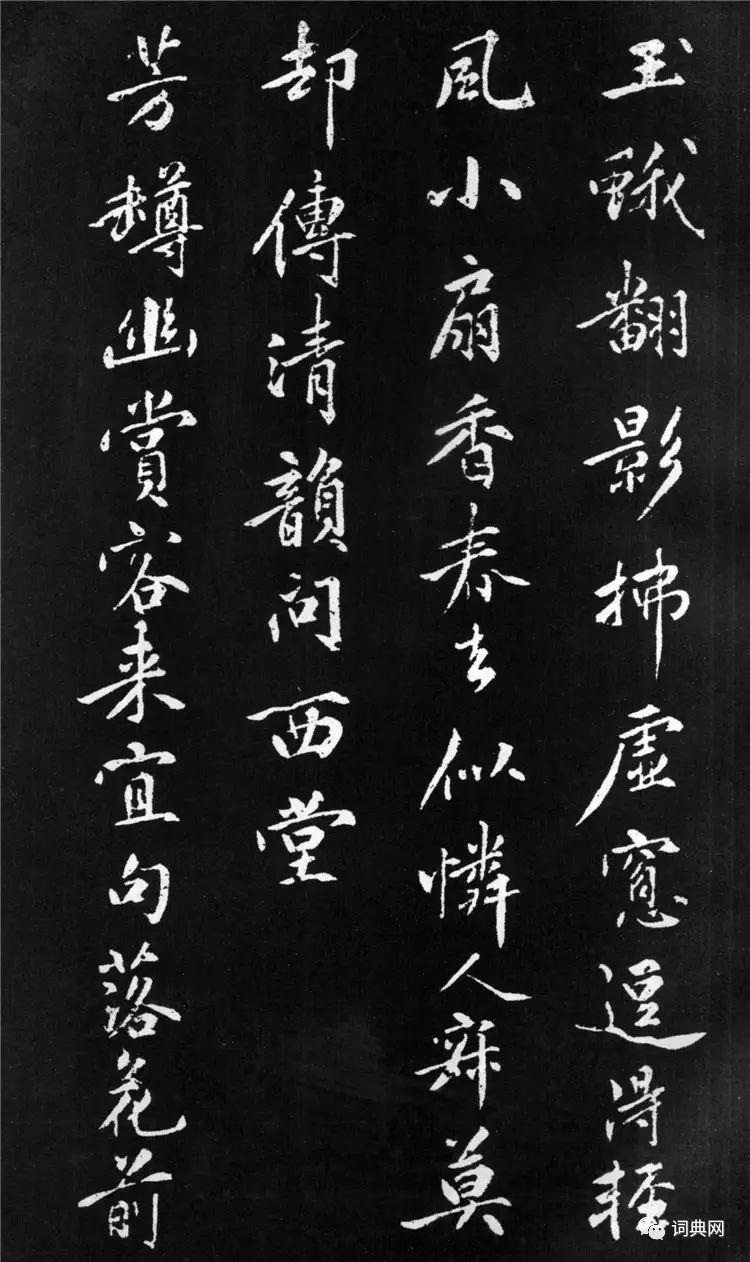 玉蛾翻影拂虛窻逗得輕
風小扇香春去似憐人寂莫
却傳清韻問西堂
芳樽幽賞客来宜句落花前
词典网